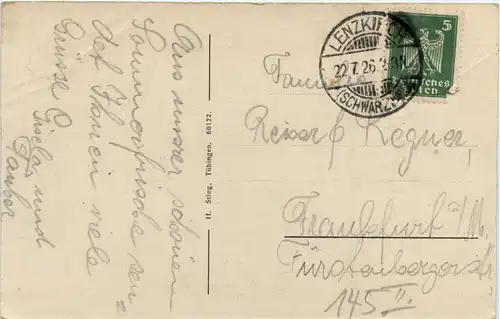 Aus unserer schönen
Sommerfrische sen
det Ihnen viele
Grüsse
Giselas und
Tauber
H. Stieg, Tübingen. 60122.
LENZKIRCH
22.7.26.
(SCHWARZW)
5
Deutsches
Familie
Reiser & Regner,
Frankfurt a/M.
Fürstenbergerstr
145 II.